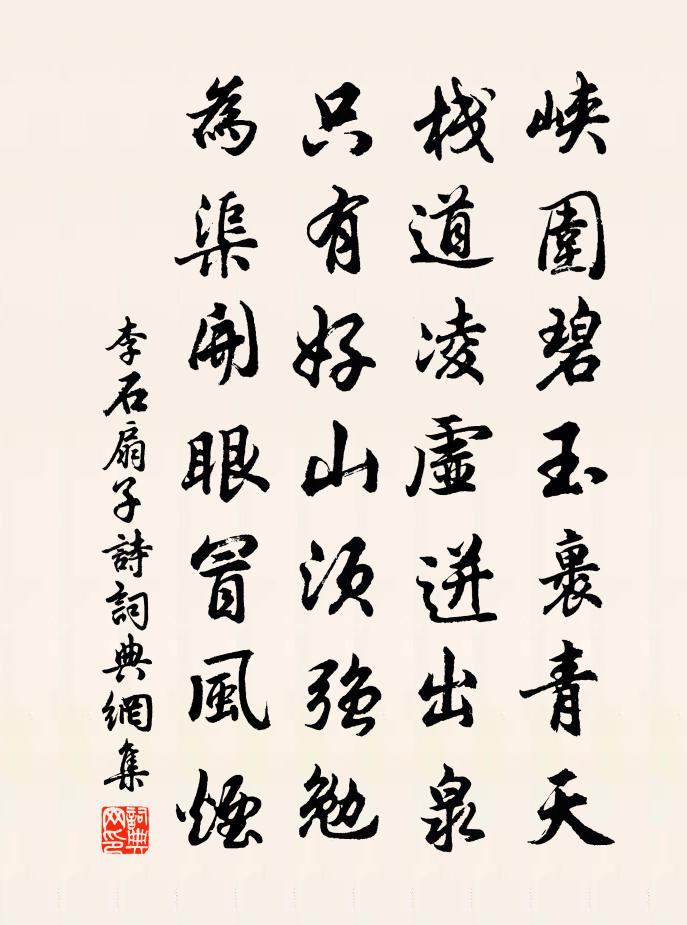 峽圍碧玉裹青天
棧道凌虛迸出泉
只有好山須強勉
為渠開眼冒風煙
李石扇子詩詞典網集
詞典網印